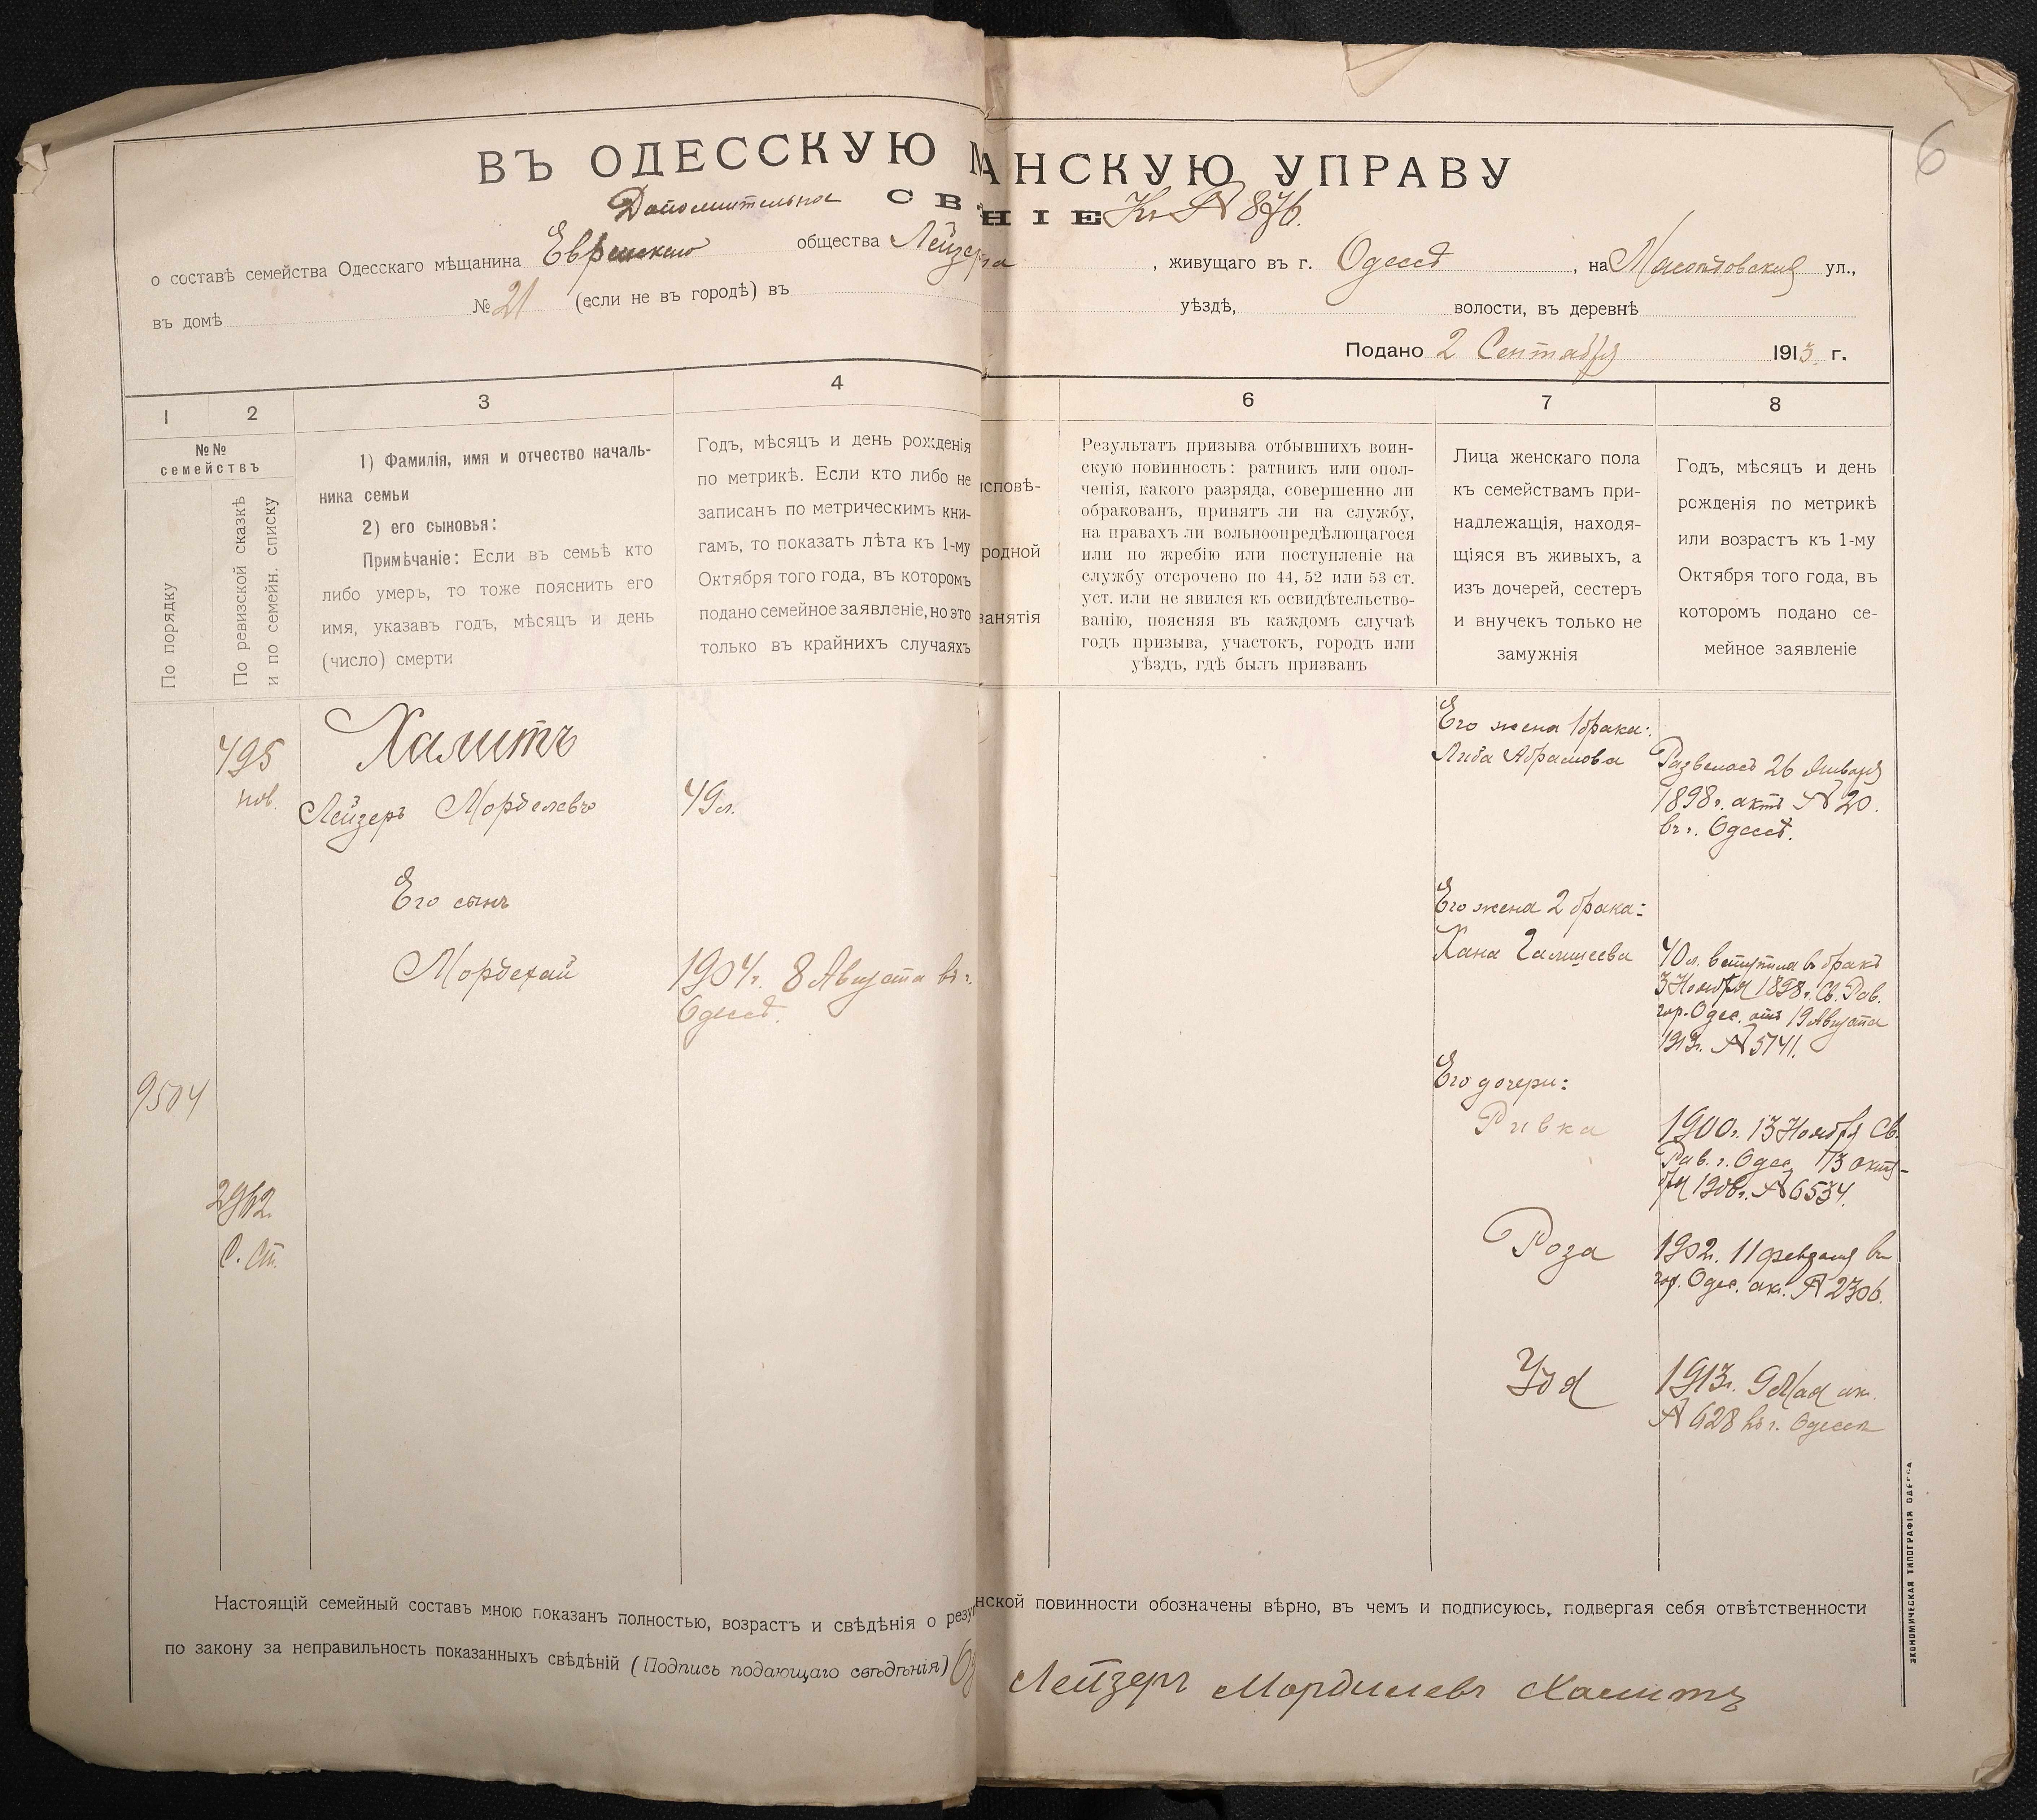 6
ВЪ ОДЕССКУЮ М АНСКУЮ УПРАВУ
Дополнительное СВ НІЕ Къ № 876.
о составѣ семейства Одесскаго мѣщанина Еврейскаго общества Лейзера, живущаго въ г. Одессѣ, на ул.,
въ домѣ № 21 (если не въ городѣ) въ уѣздѣ, волости, въ деревнѣ
Подано 2 Сентября 1913 г.
1 2 3 4 6 7 8
№№
семействъ
По порядку
По ревизской сказкѣ
и по семейн. списку
1) Фамилія, имя и отчество началь-
ника семьи
2) его сыновья:
Примѣчаніе: Если въ семьѣ кто
либо умеръ, то тоже пояснить его
имя, указавъ годъ, мѣсяцъ и день
(число) смерти
Годъ, мѣсяцъ и день рожденія
по метрикѣ. Если кто либо не
записанъ по метрическимъ кни-
гамъ, то показать лѣта къ 1-му
Октября того года, въ которомъ
подано семейное заявленіе, но это
только въ крайнихъ случаяхъ
исповѣ-
родной
занятія
Результатъ призыва отбывшихъ воин-
скую повинность: ратникъ или опол-
ченія, какого разряда, совершенно ли
обракованъ, принятъ ли на службу,
на правахъ ли вольноопредѣляющагося
или по жребію или поступленіе на
службу отсрочено по 44, 52 или 53 ст.
уст. или не явился къ освидѣтельство-
ванію, поясняя въ каждомъ случаѣ
годъ призыва, участокъ, городъ или
уѣздъ, гдѣ былъ призванъ
Лица женскаго пола
къ семействамъ при-
надлежащія, находя-
щіяся въ живыхъ, а
изъ дочерей, сестеръ
и внучекъ только не
замужнія
Годъ, мѣсяцъ и день
рожденія по метрикѣ
или возрастъ къ 1-му
Октября того года, въ
которомъ подано се-
мейное заявленіе
495
нов.
9504
2962
С. Сп.
Халитъ
Лейзеръ Морделевъ
Его сынъ
Мордехай
49 л.
1904 г. 8 Августа въ г.
Одессѣ.
Его жена 1 брака:
Либа Абрамова
Развелась 26 Января
1898 г. актъ № 20.
въ г. Одессѣ.
Его жена 2 брака:
Хана
40 л. вступила в бракъ
3 Ноября 1898 г. Св. Рав.
гор. Одес. отъ 19 Августа
1913 г. № 5741.
Его дочери:
Ривка
1900 г. 13 Ноября Св.
Рав. г. Одес. 13 октя-
бря 1908 г. № 6534.
Роза
1902 г. 11 февраля въ
гор. Одес. ак. № 2306.
Удя
1913 г. 9 Мая ак.
№ 628 въ г. Одессѣ
Настоящій семейный составъ мною показанъ полностью, возрастъ и свѣдѣнія о резу нской повинности обозначены вѣрно, въ чемъ и подписуюсь, подвергая себя отвѣтственности
по закону за неправильность показанныхъ свѣдѣній (Подпись подающаго свѣдѣнія) Лейзеръ Мордилевъ Халитъ
ЭКОНОМИЧЕСКАЯ ТИПОГРАФІЯ ОДЕССА